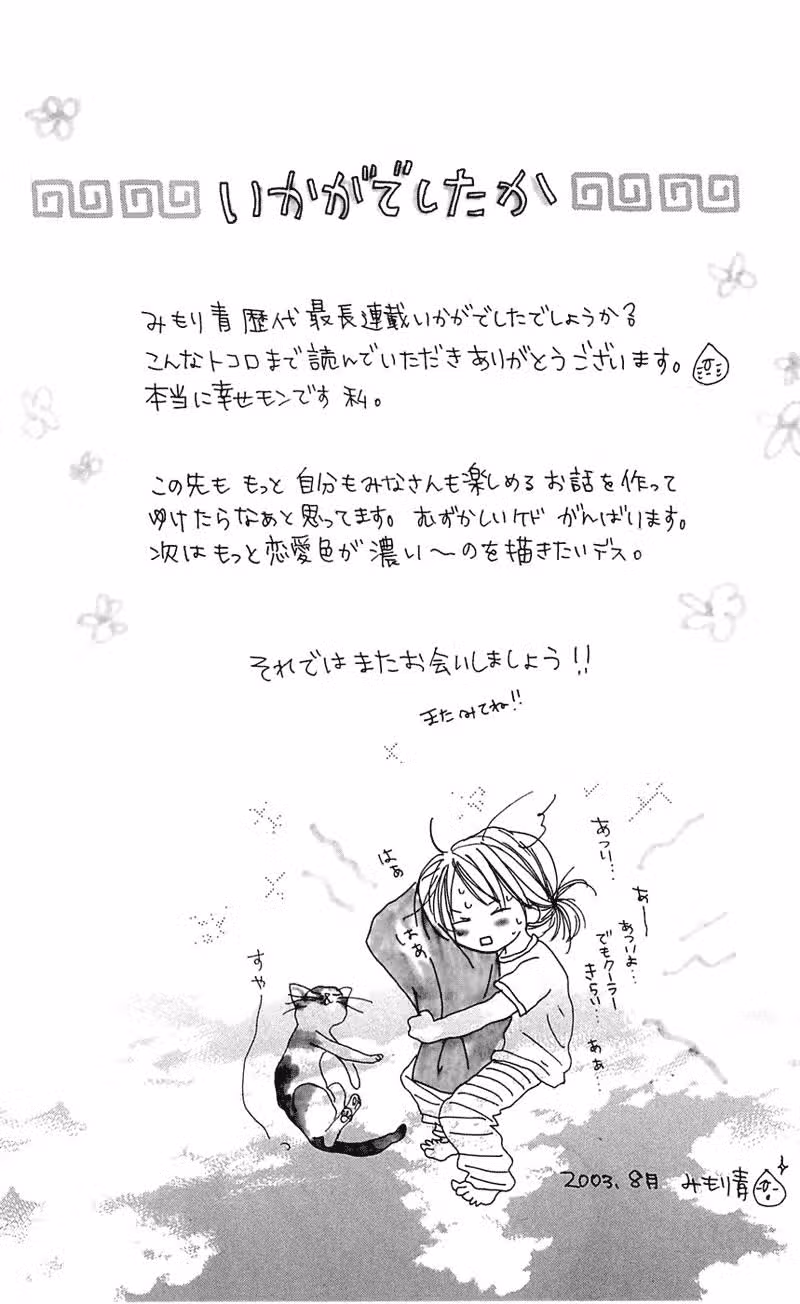 いかがでしたか
みもり青 歴代 最長連載いかがでしたでしょうか?
こんなトコロまで読んでいただきありがとうございます。
本当に幸せモンです 私。
この先も もっと 自分もみなさんも楽しめる お話を作って
ゆけたらなぁと思ってます。むずかしいケド がんばります。
次は もっと恋愛色が濃い〜のを描きたいデス。
それでは またお会いしましょう!!
またみてね!!
あつい…
あー
あついよ…
でもクーラー
きらい…
あぁ…
はぁ
はぁ
すや
2003. 8月 みもり青